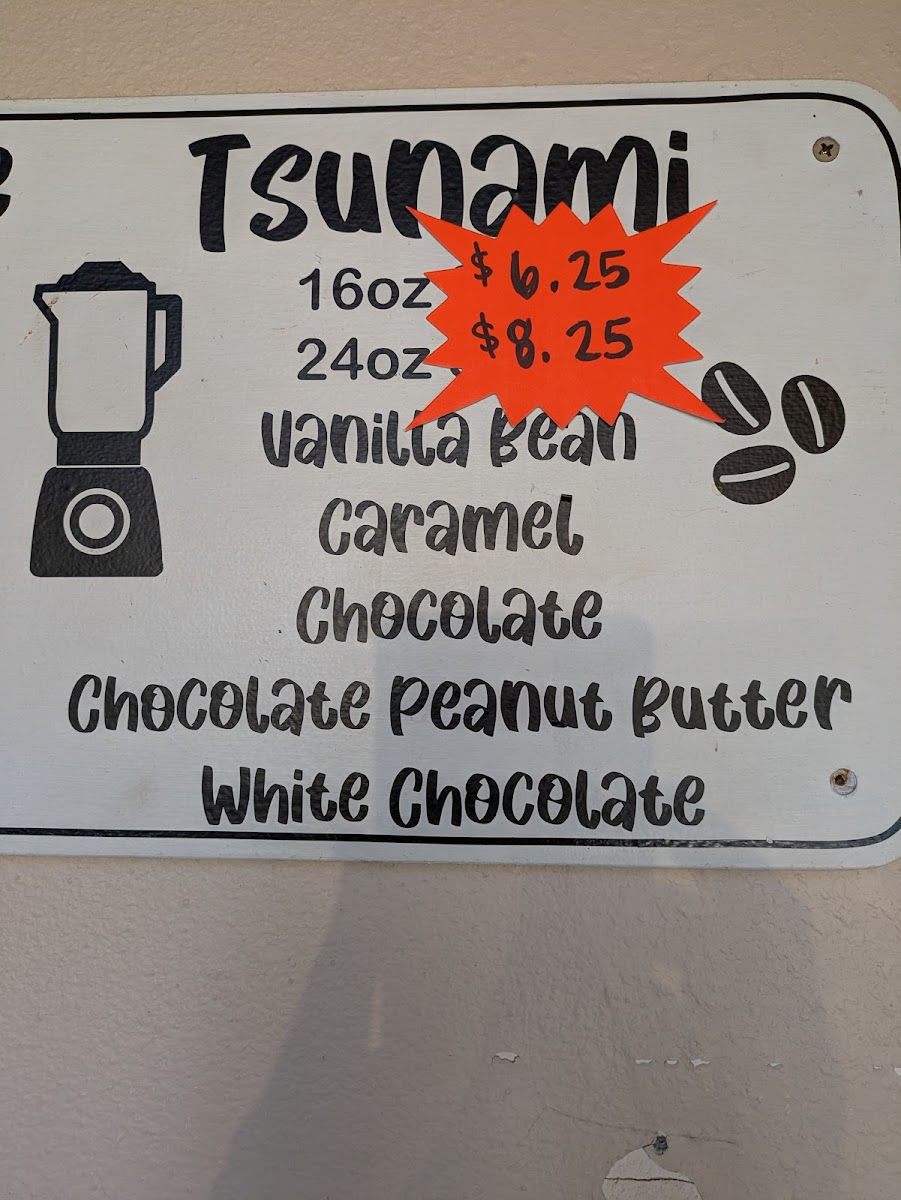 Tsunami
16oz $6.25
24oz $8.25
Vanilla Bean
Caramel
Chocolate
Chocolate Peanut Butter
White Chocolate